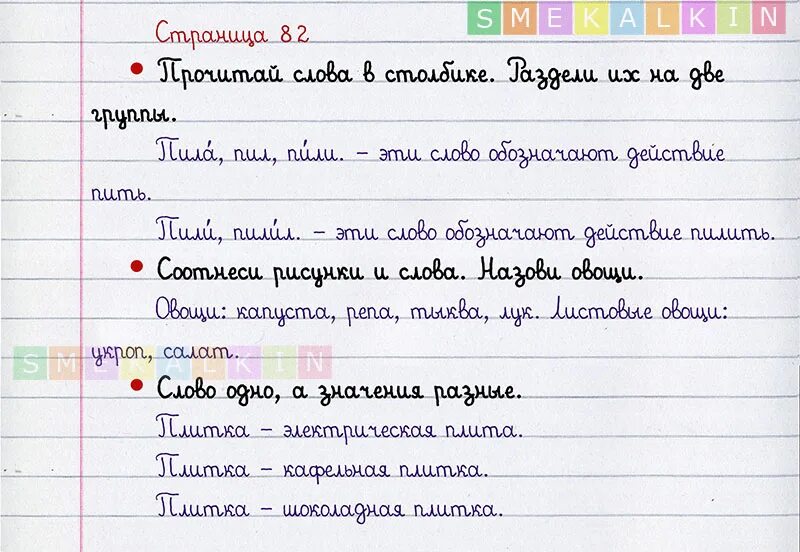 SMEKALKIN
Страница 82
• Прочитай слова в столбике. Раздели их на две
группы.
Пила́, пил, пи́ли. – эти слово обозначают действие
пить.
Пили́, пили́л. – эти слово обозначают действие пилить.
• Соотнеси рисунки и слова. Назови овощи.
Овощи: капуста, репа, тыква, лук. Листовые овощи:
укроп, салат.
SMEKALKIN
• Слово одно, а значения разные.
Плитка – электрическая плита.
Плитка – кафельная плитка.
Плитка – шоколадная плитка.